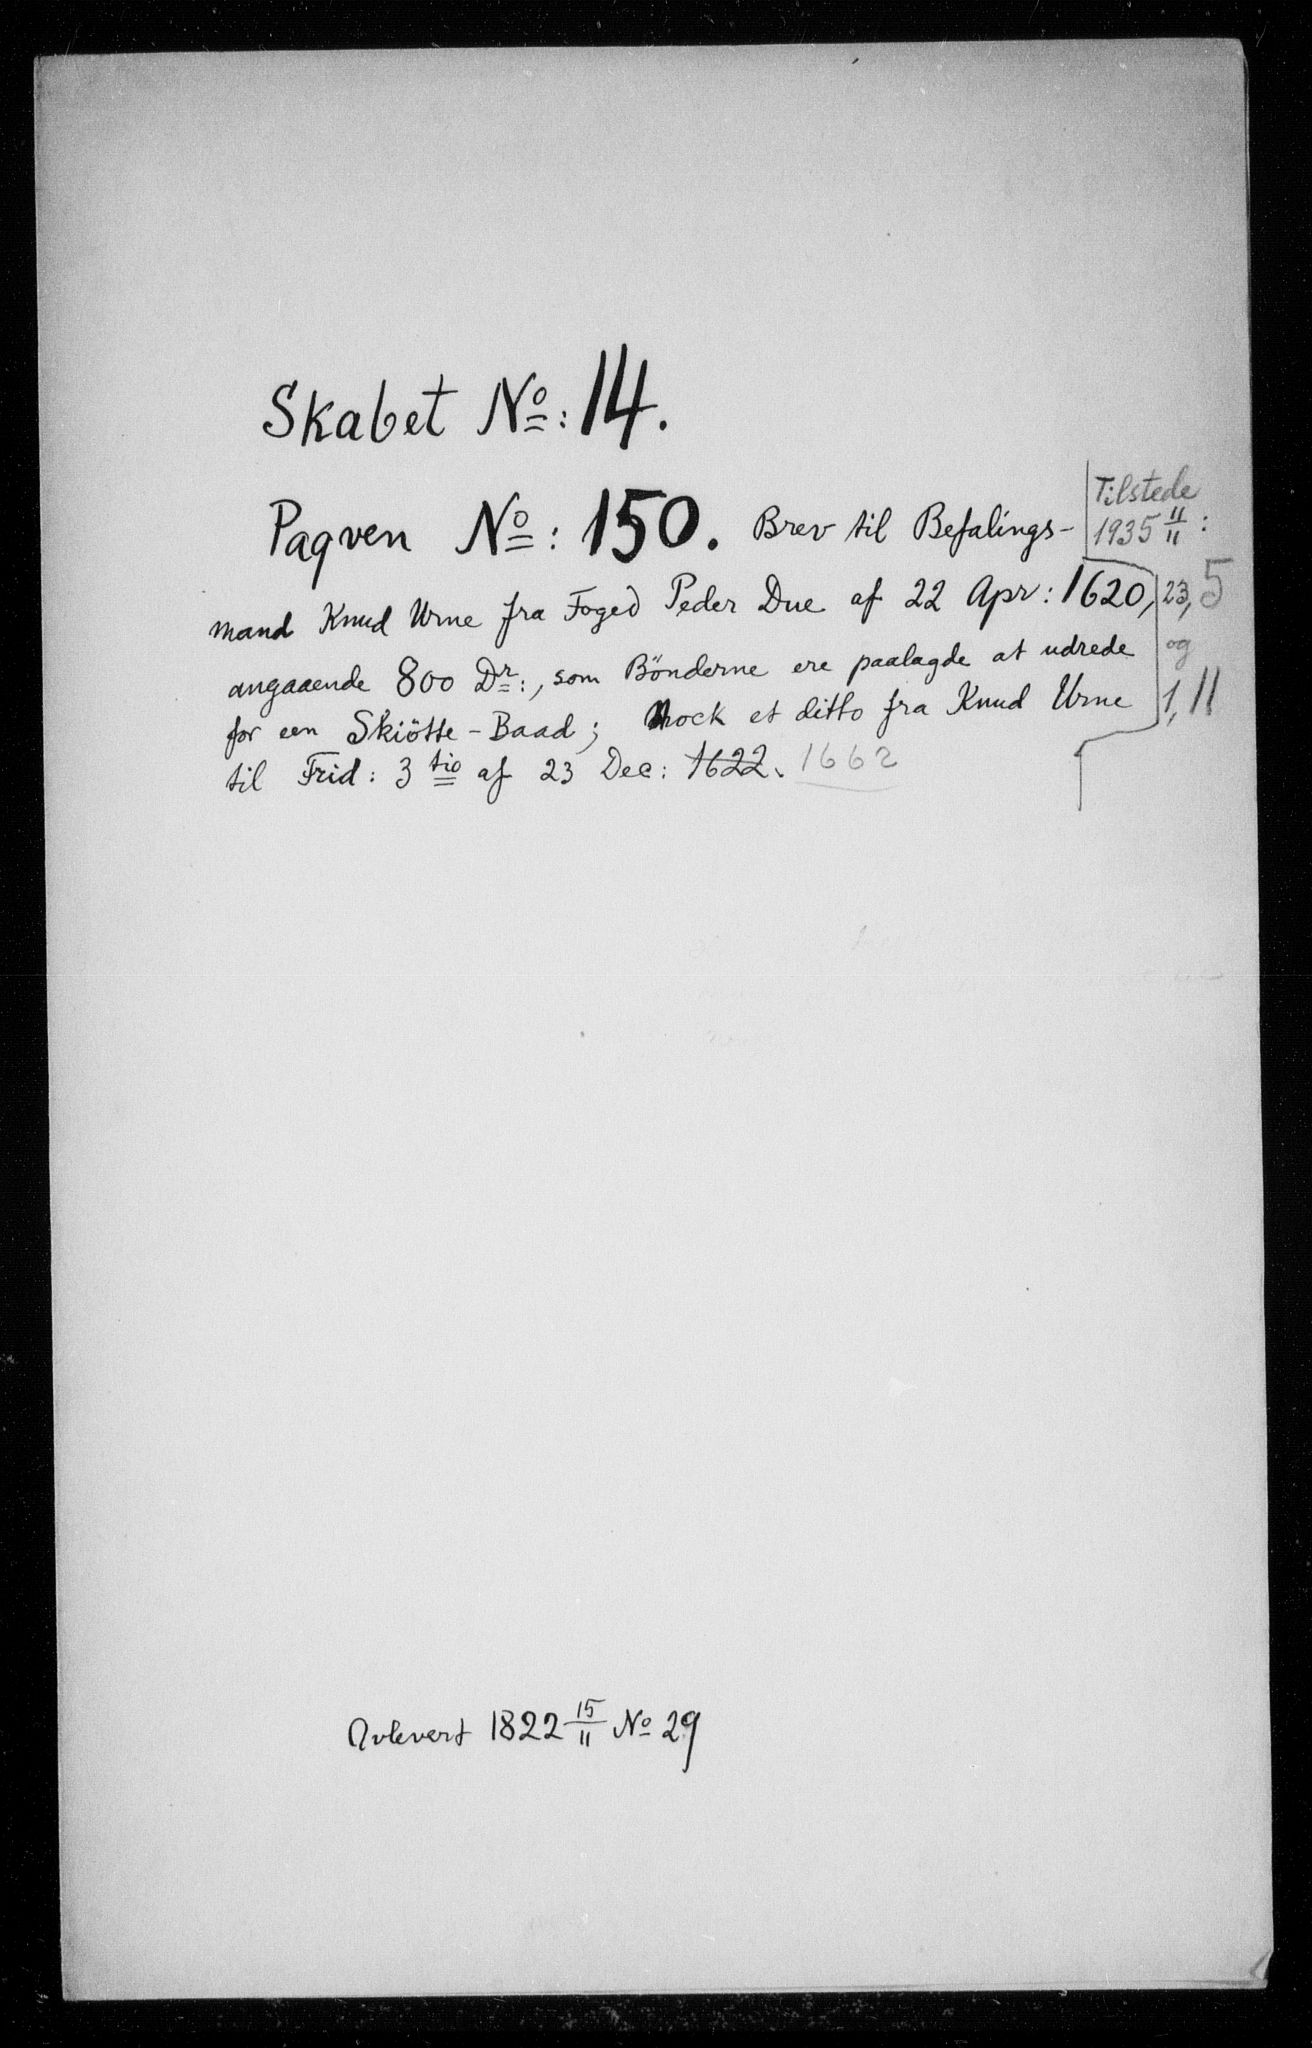 Skabet No: 14.
Pagven No: 150. Brev til Befalings-
mand Knud Urne fra Foged Peder Due af 22 Apr: 1620,
angaaende 800 Dr:, som Bönderne ere paalagde at udrede
for een Skiötte-Baad; Nock et ditto fra Knud Urne
til Frid: 3 tio af 23 Dec: 1622. 1662
Tilstede
1935 11/11 :
23, 5
og
1, 11
Avlevert 1822 15/11 No 29